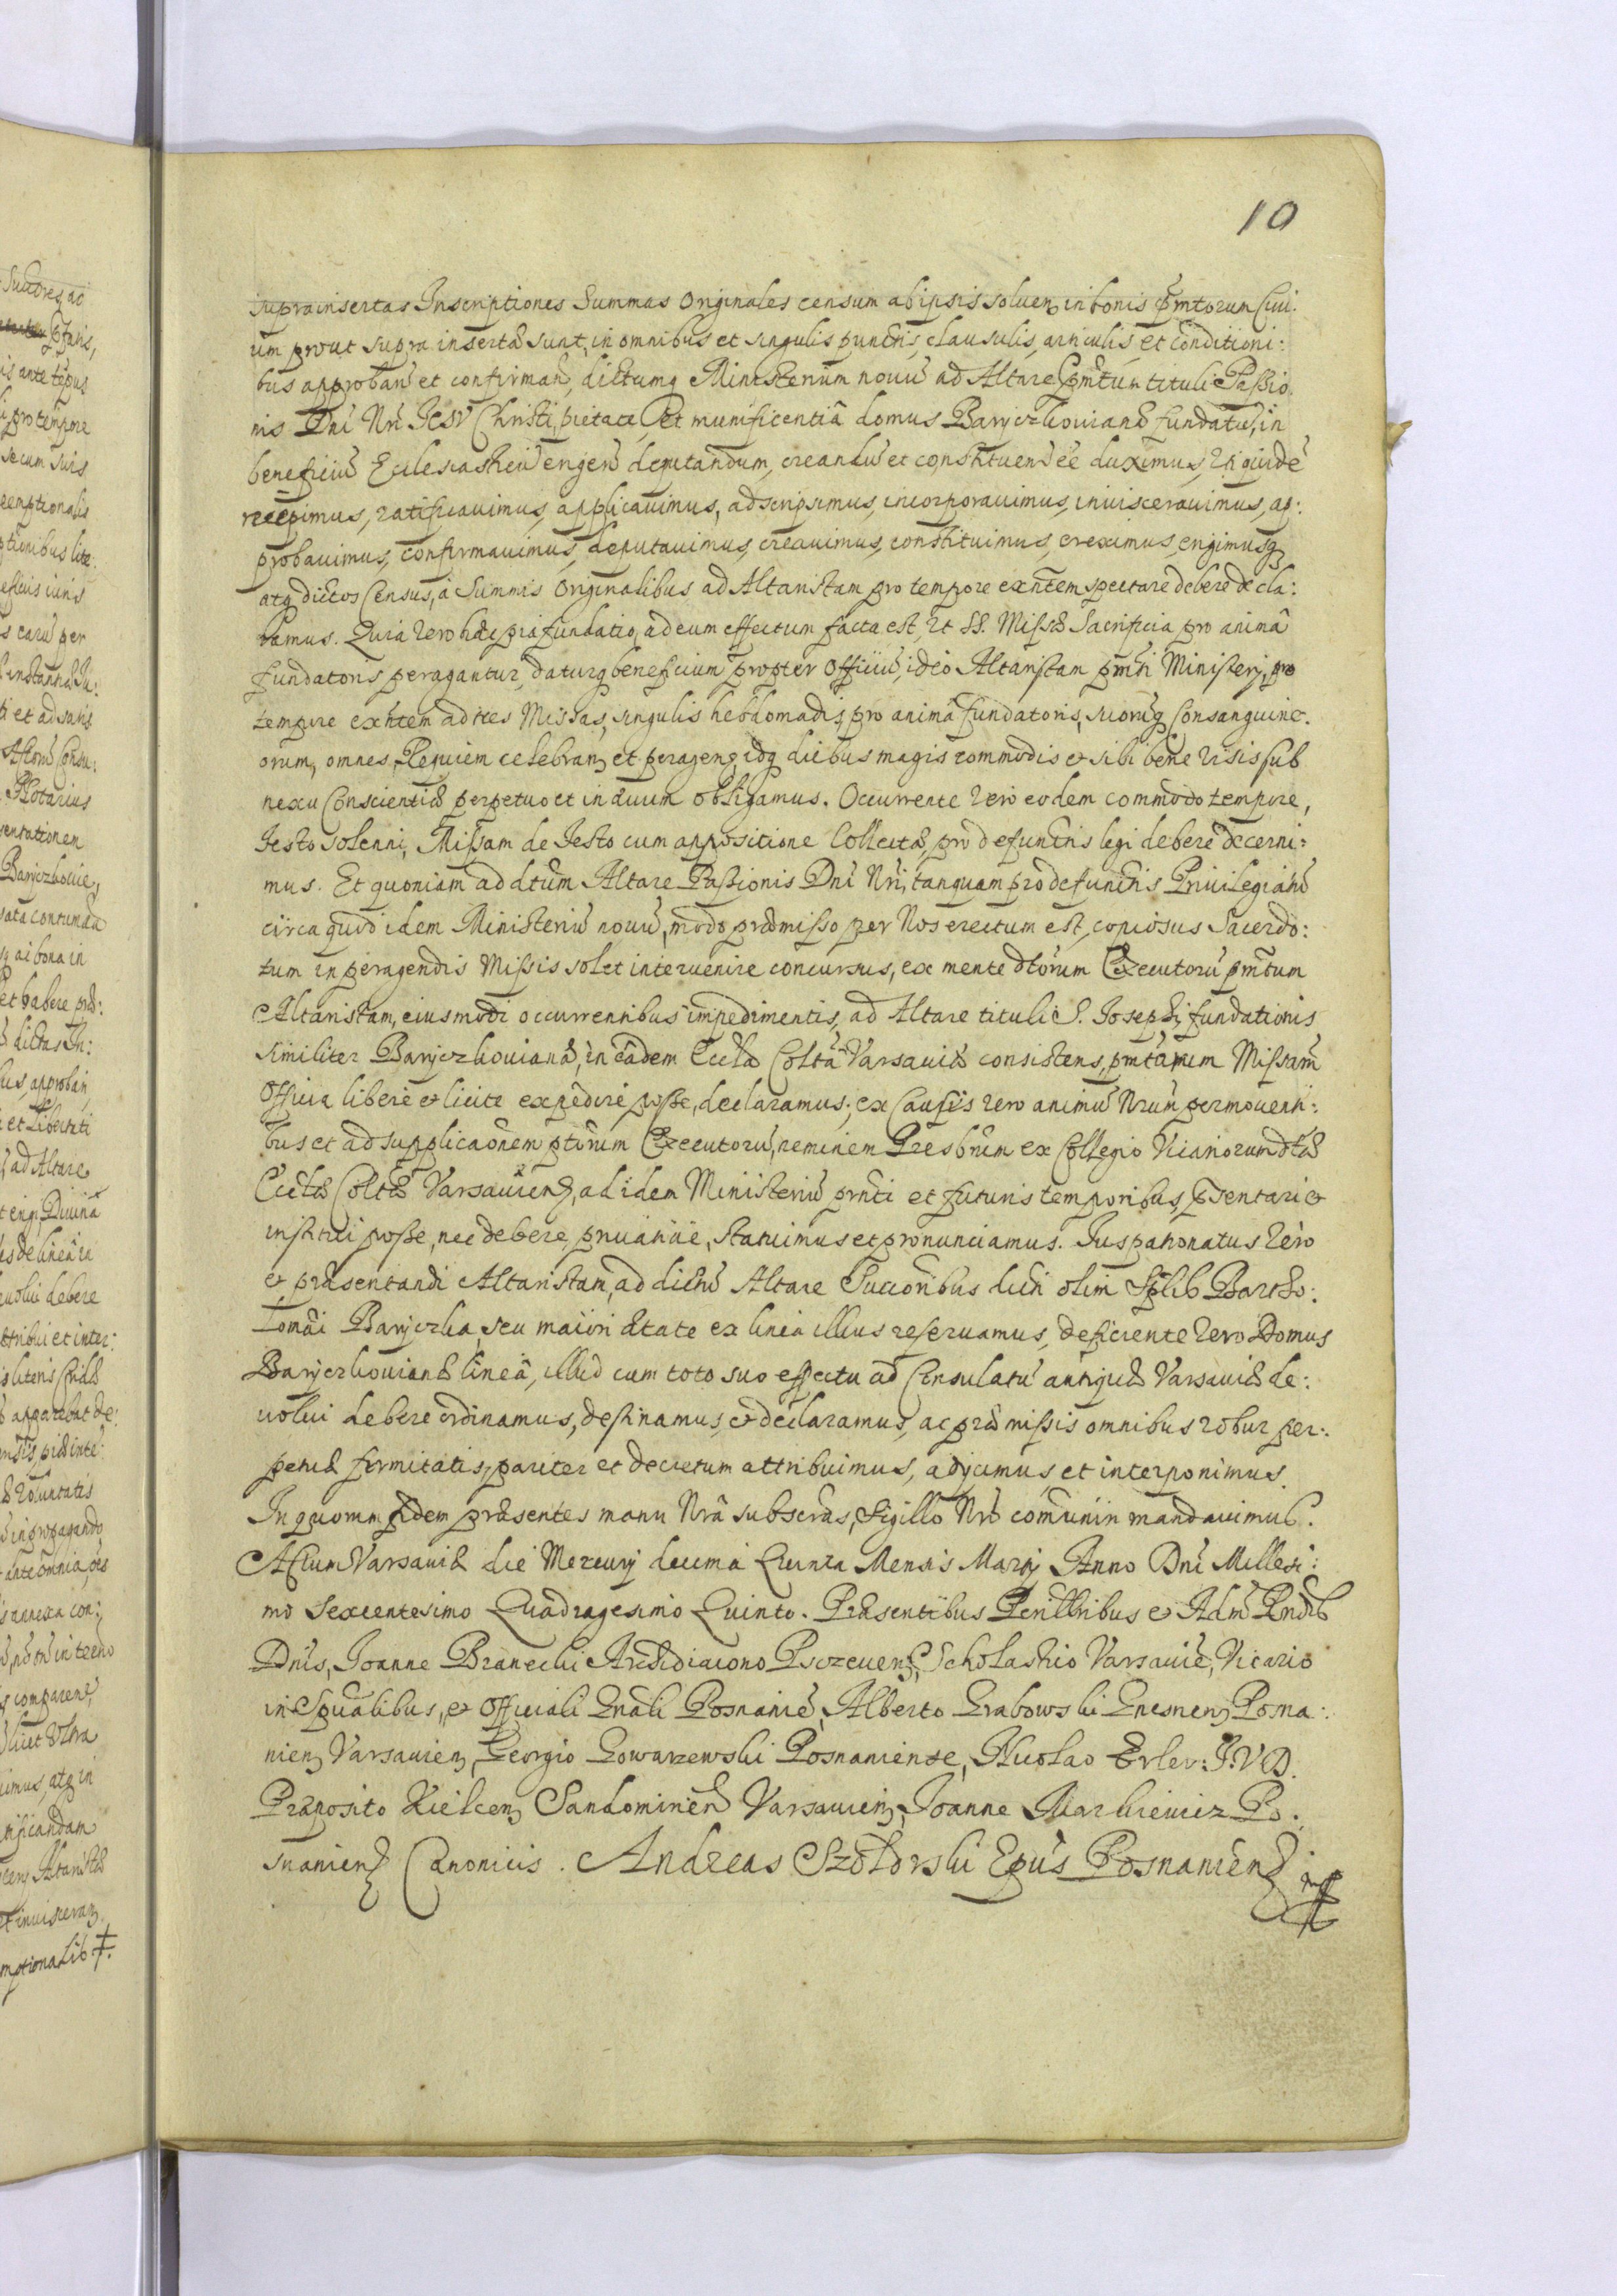 10
suprainsertas Inscriptiones Summas Originales censum ab ipsis soluen in bonis pmtorum Ciui:
um prout supra insertæ sunt, in omnibus et singulis punctis, clausulis, articulis et conditioni:
bus approban et confirman, dictumq Ministerium nouū ad Altare pmtum tituli Passio
nis Dni Nri Jesv Christi, pietate et munificentiâ domus Baryczkouianæ fundatū, in
beneficiū Ecclesiasticū erigen deputandum, creandū et constituen ēē duximus, Vti quidē
recepimus, ratificauimus, applicauimus, adscripsimus, incorporauimus, inuiscerauimus, ap:
probauimus, confirmauimus, deputauimus, creauimus, constituimus, ereximus, erigimusq
atq dictos Census, à Summis Originalibus ad Altaristam pro tempore exntem spectare debere decla:
ramus. Quia Vero hæc pia fundatio, ad eum effectum facta est, Vt SS. Missæ Sacrificia pro animâ
fundatoris peragantur, daturq beneficium propter Officiū, ideo Altaristam pmti Ministerij, pro
tempore exntem ad tres Missas, singulis hebdomadis, pro animâ fundatoris, suorūq Consanguine:
orum, omnes Requiem celebran et peragen, idq diebus magis commodis et sibi bene Visis sub
nexu Conscientiæ perpetuo et in æuum obligamus. Occurrente Vero eodem commodo tempore,
Festo solenni, Missam de Festo cum appositione Collectæ, pro defunctis legi debere decerni:
mus. Et quoniam ad dtum Altare Passionis Dni Nri, tanquam pro defunctis Priuilegiatū
circa quod idem Ministeriū nouū, modo præmisso per Nos erectum est, copiosus Sacerdo:
tum in peragendis Missis solet interuenire concursus, ex mente dtorum Executorū pmtum
Altaristam, eiusmodi occurrentibus impedimentis, ad Altare tituli S. Josephi, fundationis
similiter Baryczkouianæ, in eâdem Eccla Coltâ Varsauiæ consistens, pmtarum Missarū
Officia libere et licite expedire posse, declaramus; ex Causis Vero animū Nrum permouenti:
bus et ad supplicaonem ptorum Executorū, neminem Presbrum ex Collegio Vicariorum dtæ
Ecclæ Coltæ Varsauien, ad idem Ministeriū pnti et futuris temporibus, psentari et
institui posse, nec debere, priuatiue, statuimus et pronunciamus. Juspatronatus Vero
et præsentandi Altaristam, ad dictū Altare Succoribus dicti olim Spblis Bartho:
lomæi Baryczka, seu maiori ætate ex linea illius reseruamus, deficiente Vero Domus
Baryczkouianæ lineâ, illud cum toto suo effectu ad Consulatū antiquæ Varsauiæ de:
uolui debere ordinamus, destinamus, et declaramus, ac præmissis omnibus robur per:
petuæ firmitatis, pariter et decretum attribuimus, adijcimus et interponimus.
In quorum fidem præsentes manu Nrâ subscras, Sigillo Nro comuniri mandauimus.
Actum Varsauiæ die Mercurij decimâ Quinta Mensis Martij Anno Dni Millesi:
mo Sexcentesimo Quadragesimo Quinto. Præsentibus Perillribus et Adm Rndis
Dnis, Joanne Branecki Archidiacono Psczeuen, Scholastico Varsauiē, Vicario
in Spualibus, et Officiali Gnali Posnaniē, Alberto Grabowski Gnesnen Posna:
nien Varsauien, Georgio Gowarzewski Posnaniense, Nicolao Erler J.V.D.
Præposito Kielcen Sandomirien Varsauien, Joanne Markieuicz Po:
snanien Canonicis. Andreas Szołdrski Epūs Posnanien mp